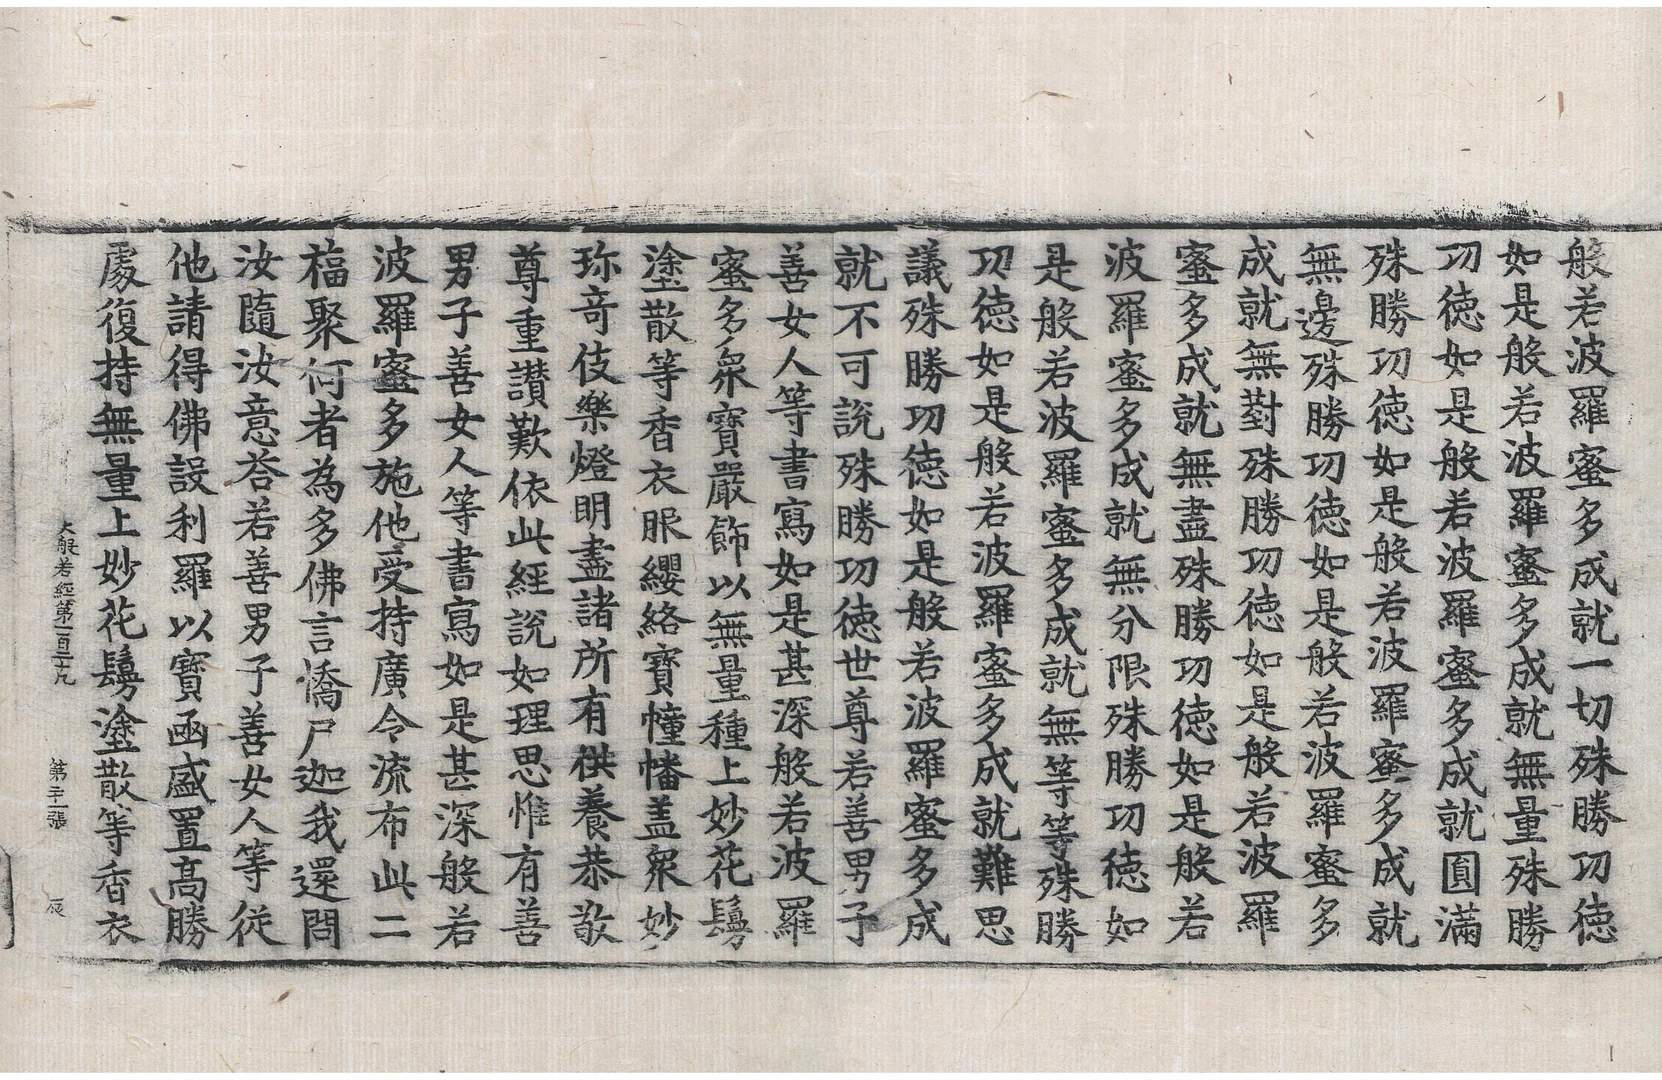 般若波羅蜜多成就一切殊勝功德
如是般若波羅蜜多成就無量殊勝
功德如是般若波羅蜜多成就圓滿
殊勝功德如是般若波羅蜜多成就
無邊殊勝功德如是般若波羅蜜多
成就無對殊勝功德如是般若波羅
蜜多成就無盡殊勝功德如是般若
波羅蜜多成就無分限殊勝功德如
是般若波羅蜜多成就無等等殊勝
功德如是般若波羅蜜多成就難思
議殊勝功德如是般若波羅蜜多成
就不可說殊勝功德世尊若善男子
善女人等書寫如是甚深般若波羅
蜜多衆寶嚴飾以無量種上妙花鬘
塗散等香衣服纓絡寶幢幡盖衆妙
珎竒伎樂燈明盡諸所有供養恭敬
尊重讚歎依此經說如理思惟有善
男子善女人等書寫如是甚深般若
波羅蜜多施他受持廣令流布此二
福聚何者為多佛言憍尸迦我還問
汝隨汝意荅若善男子善女人等從
他請得佛設利羅以寶函盛置高勝
處復持無量上妙花鬘塗散等香衣
大般若經第一百二十九 第二十一張 辰